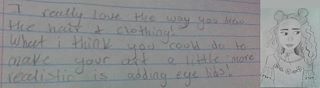 I really love the way you draw
the hair & clothing!
What i think you could do to
make your art a little more
realistic is adding eye lids!